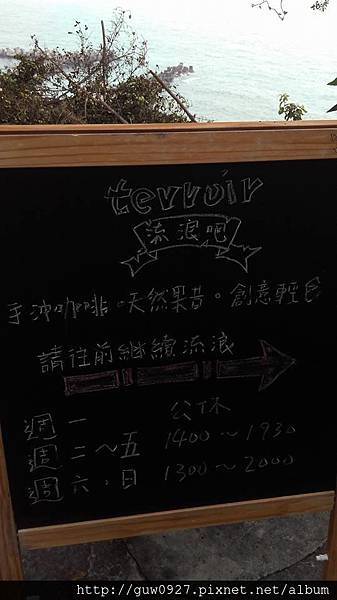 terroir
流浪吧
手沖咖啡。天然果昔。創意輕食
請往前繼續流浪
週一 公休
週二～五 1400～1930
週六、日 1300～2000
http://guw0927.pixnet.net/album